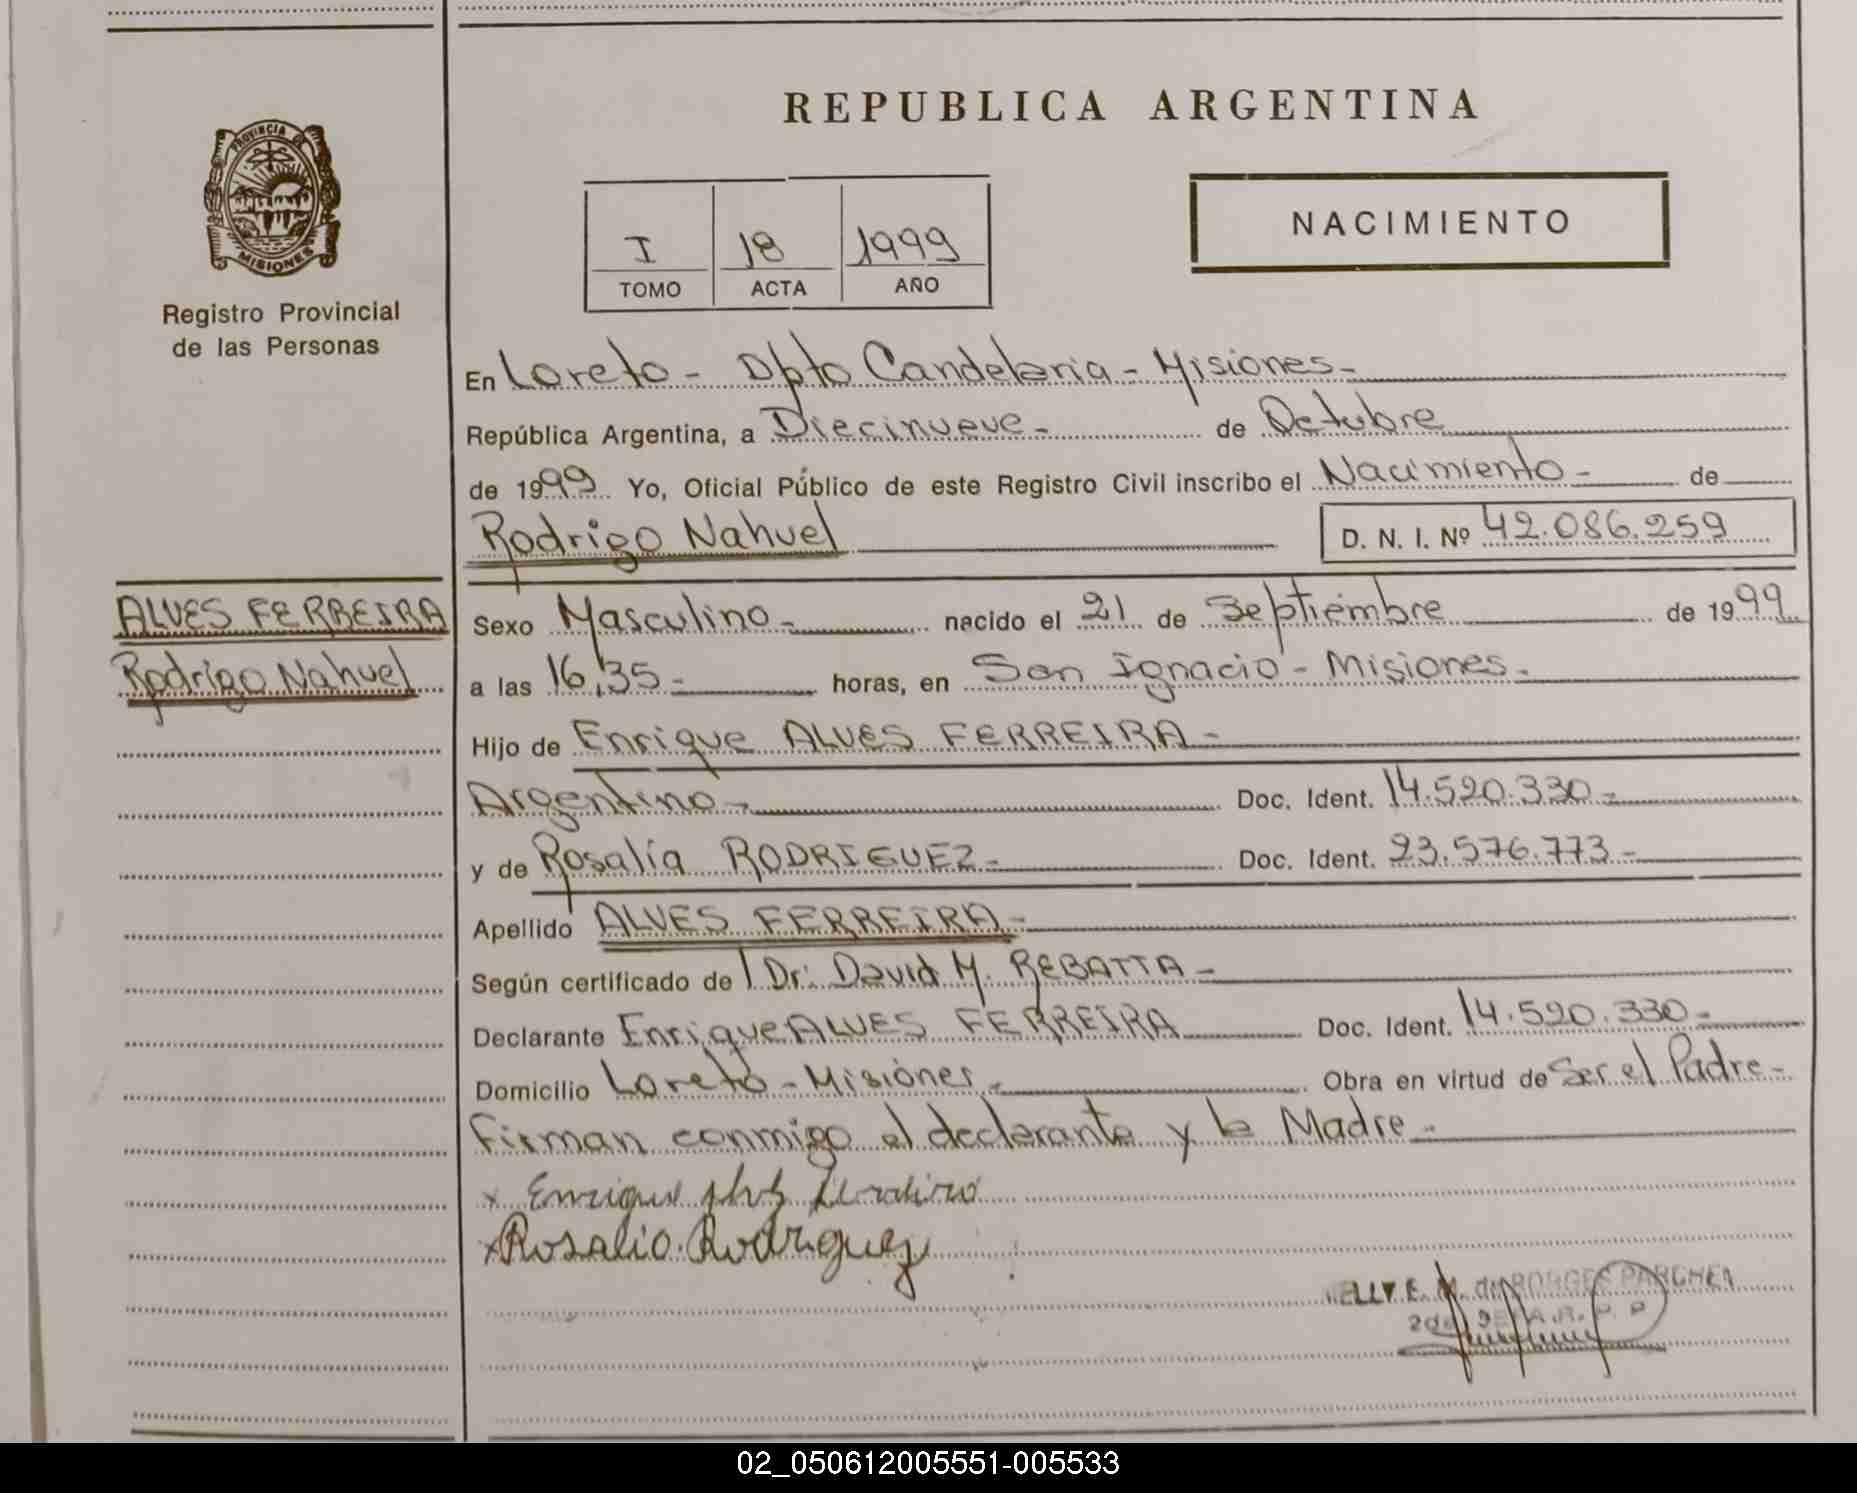 REPUBLICA ARGENTINA
PROVINCIA DE
MISIONES
Registro Provincial
de las Personas
I 18 1999
TOMO ACTA AÑO
NACIMIENTO
En Loreto - Dpto Candelaria - Misiones -
República Argentina, a Diecinueve - de Octubre
de 1999 Yo, Oficial Público de este Registro Civil inscribo el Nacimiento - de
Rodrigo Nahuel D. N. I. Nº 42.086.259
ALVES FERREIRA
Rodrigo Nahuel
Sexo Masculino - nacido el 21 de Septiembre de 1999
a las 16,35 - horas, en San Ignacio - Misiones -
Hijo de Enrique ALVES FERREIRA -
Argentino - Doc. Ident. 14.520.330 -
y de Rosalía RODRIGUEZ - Doc. Ident. 23.576.773 -
Apellido ALVES FERREIRA -
Según certificado de Dr: David M. REBATTA -
Declarante Enrique ALVES FERREIRA Doc. Ident. 14.520.330 -
Domicilio Loreto - Misiones - Obra en virtud de Ser el Padre -
Firman conmigo el declarante y la Madre -
x Enrique Alves Ferreira
x Rosalia Rodriguez
E. M. de BORGES
02_050612005551-005533